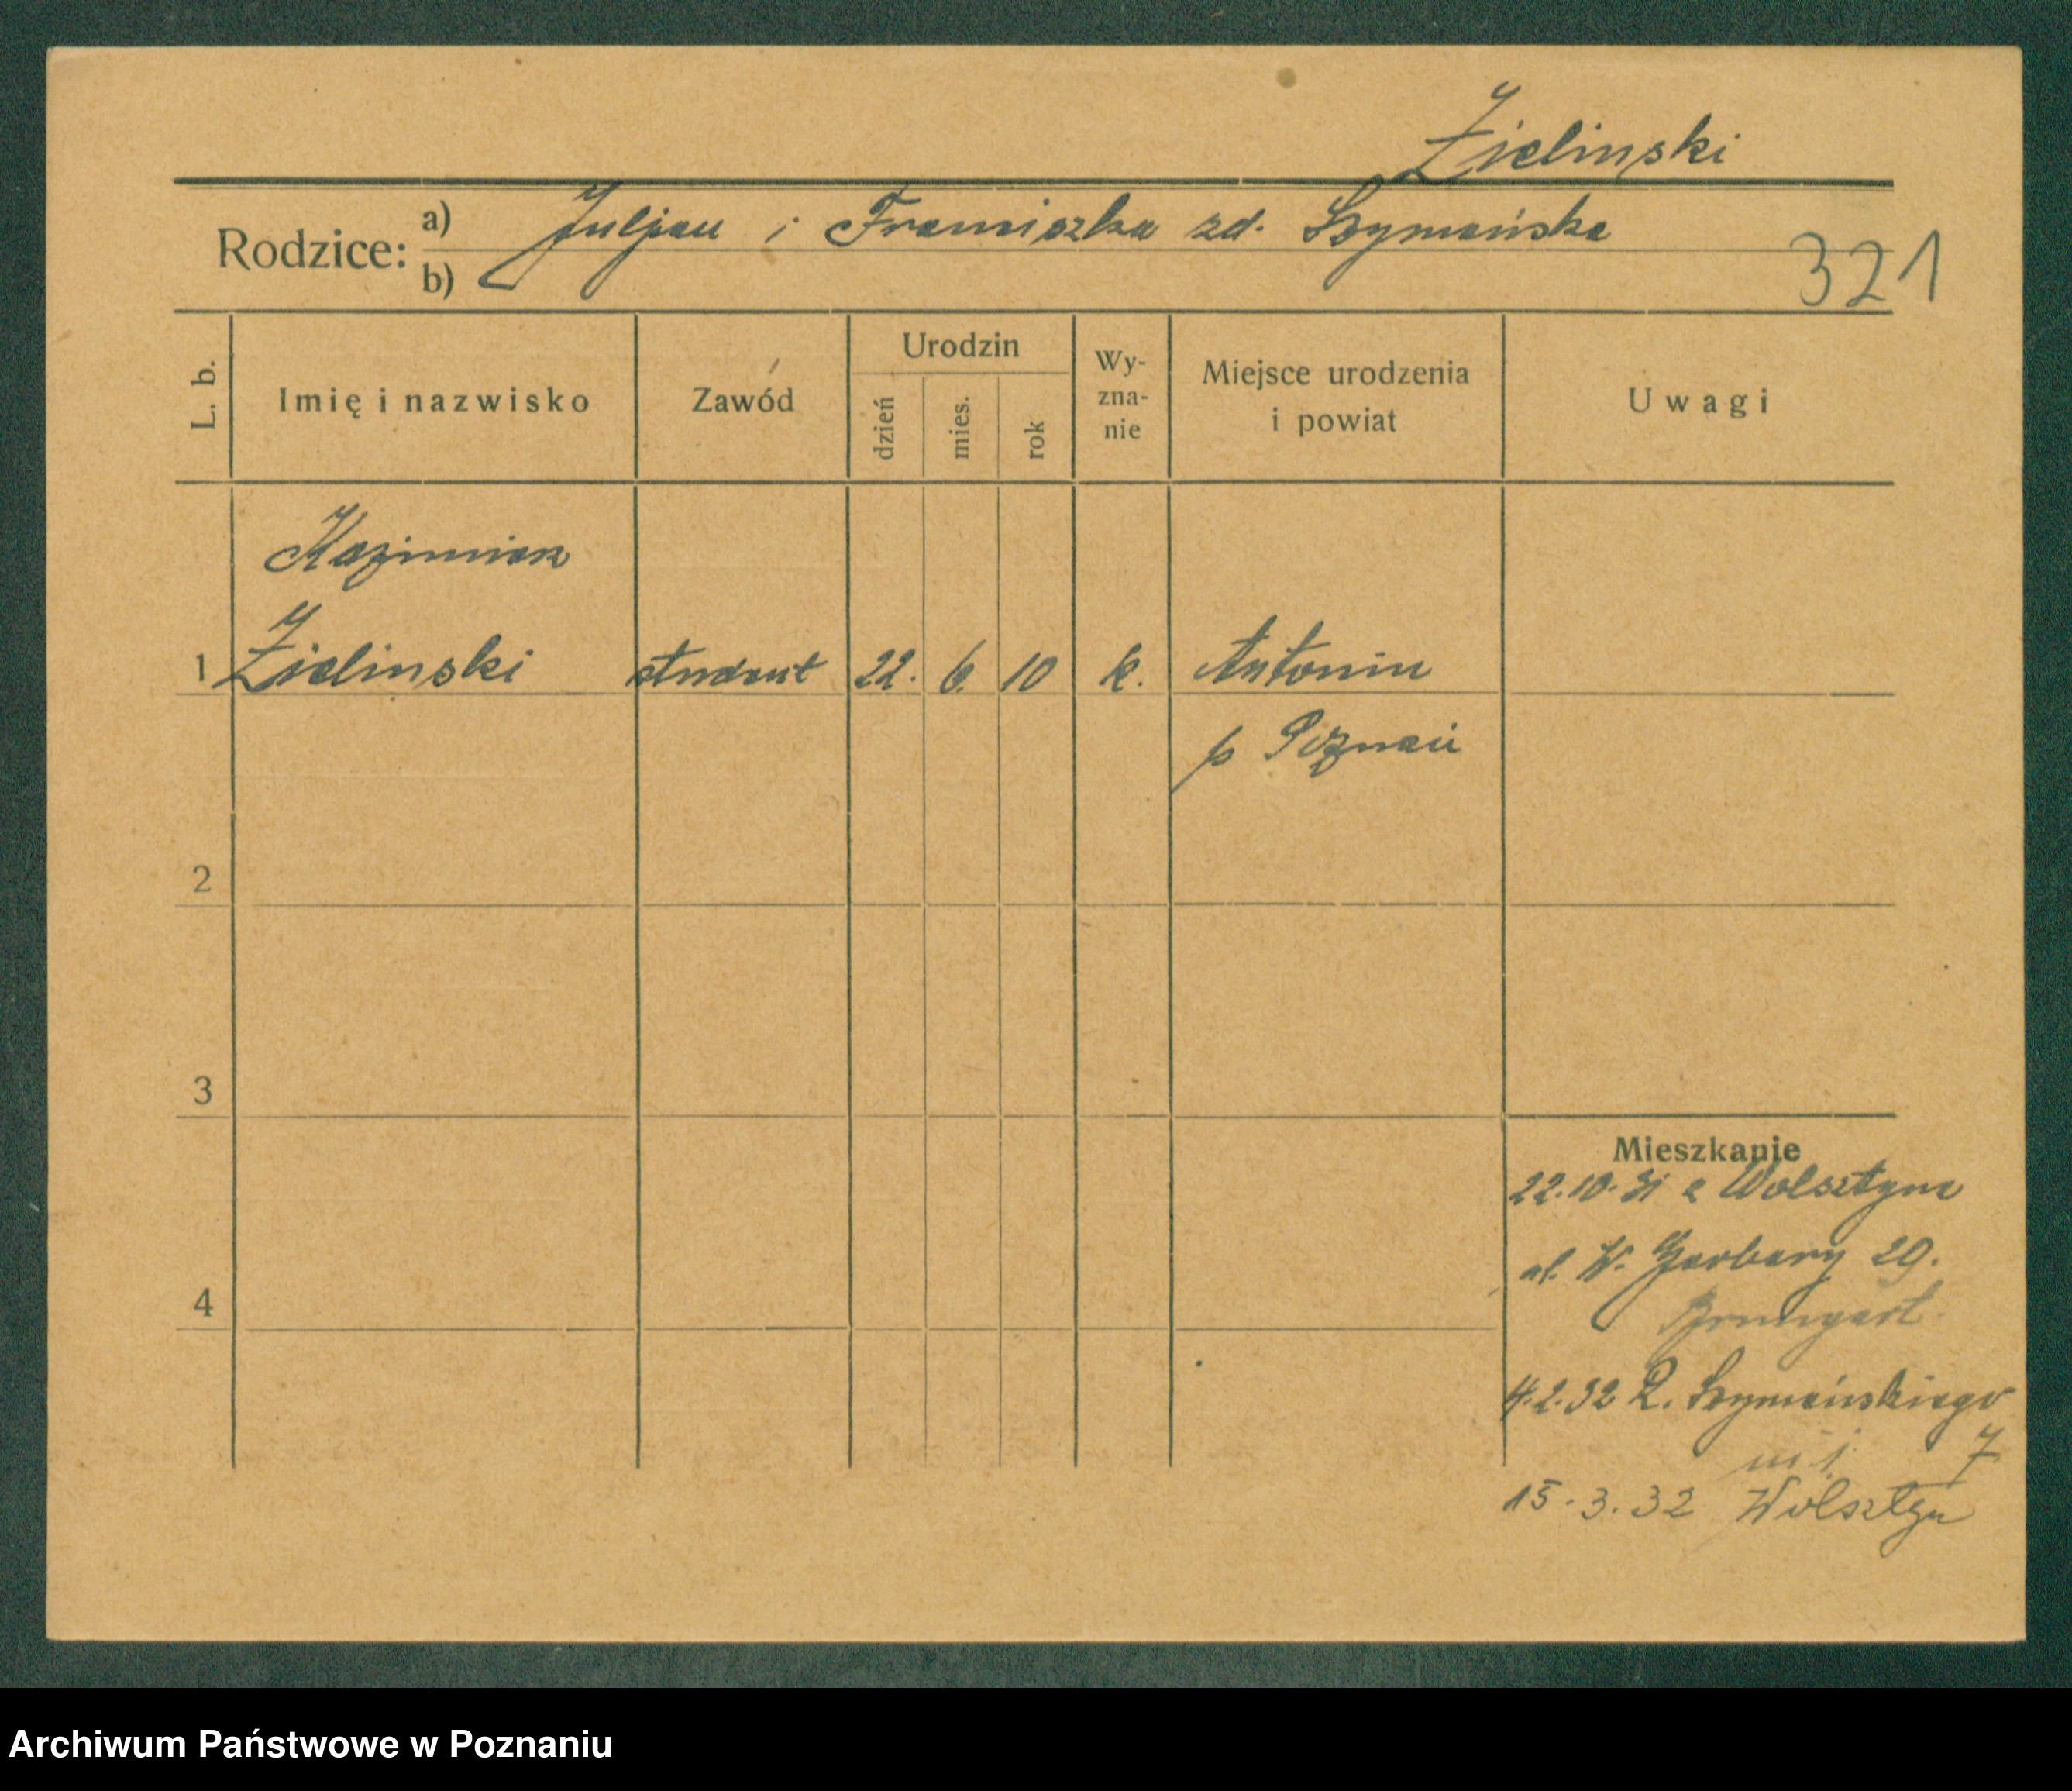 Zielinski
Rodzice: a) Juljan i Franciszka zd. Szymańska
b)
321
L. b.
Imię i nazwisko
Zawód
Urodzin
dzień
mies.
rok
Wy-
zna-
nie
Miejsce urodzenia
i powiat
Uwagi
Kazimierz
1 Zielinski student 22. 6. 10 k. Antonin
p Poznań
2
3
4
Mieszkanie
22.10.31 z Wolsztyna
ul. W. Garbary 29.
4.2.32 R. Szymańskiego
m 1. 7
15.3.32 Wolsztyn
Archiwum Państwowe w Poznaniu